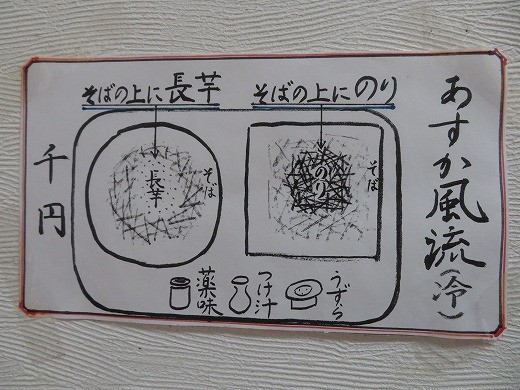 あすか風流(冷)
そばの上にのり
そば
のり
そばの上に長芋
そば
長芋
うずら
つけ汁
薬味
千円